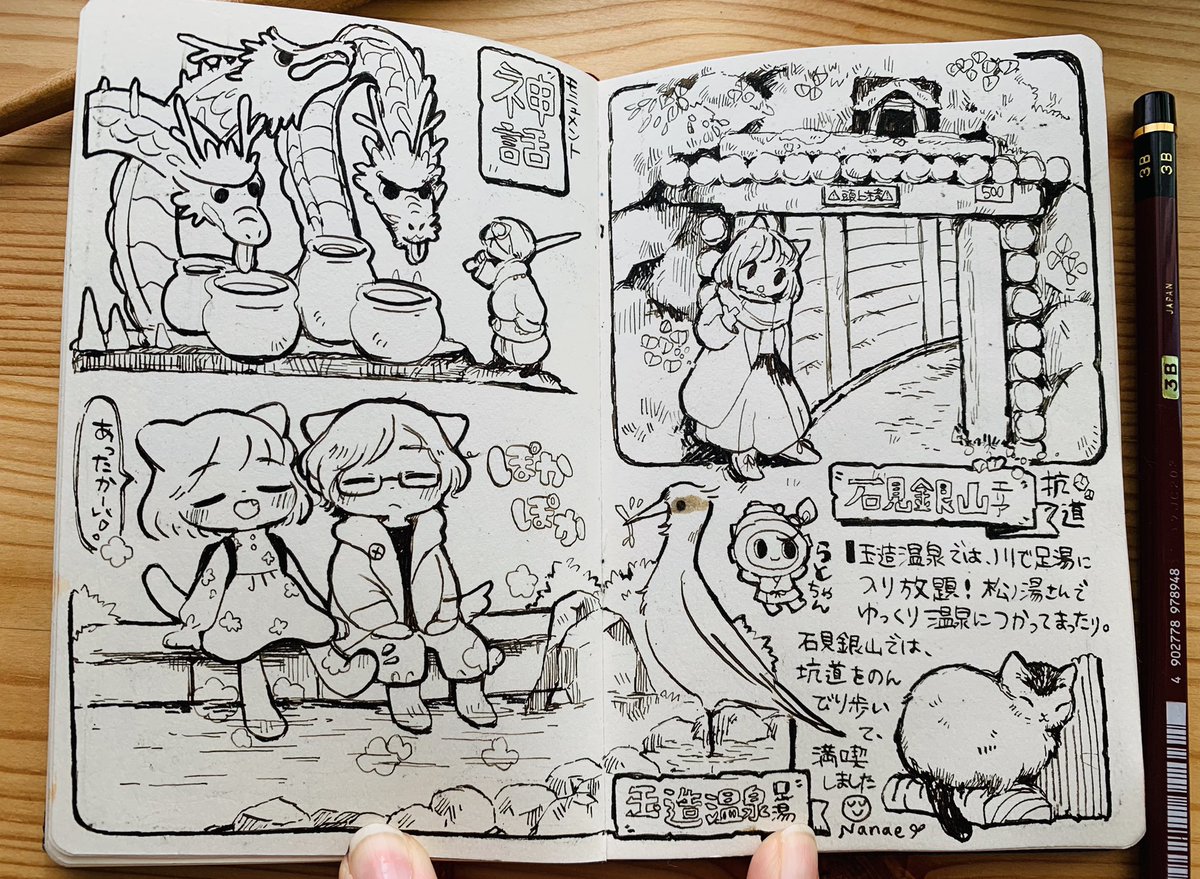 神話
モニュメント
あったかい
ぽか
ぽか
頭上注意
500
石見銀山エリア
坑道
らとちゃん
玉造温泉では、川で足湯に
入り放題！松ノ湯さんで
ゆっくり温泉につかってまったり。
石見銀山では、
坑道をのん
びり歩い
て、
満喫
しました
Nanae
玉造温泉
3B
3B
JAPAN
3B
4 902778 978948